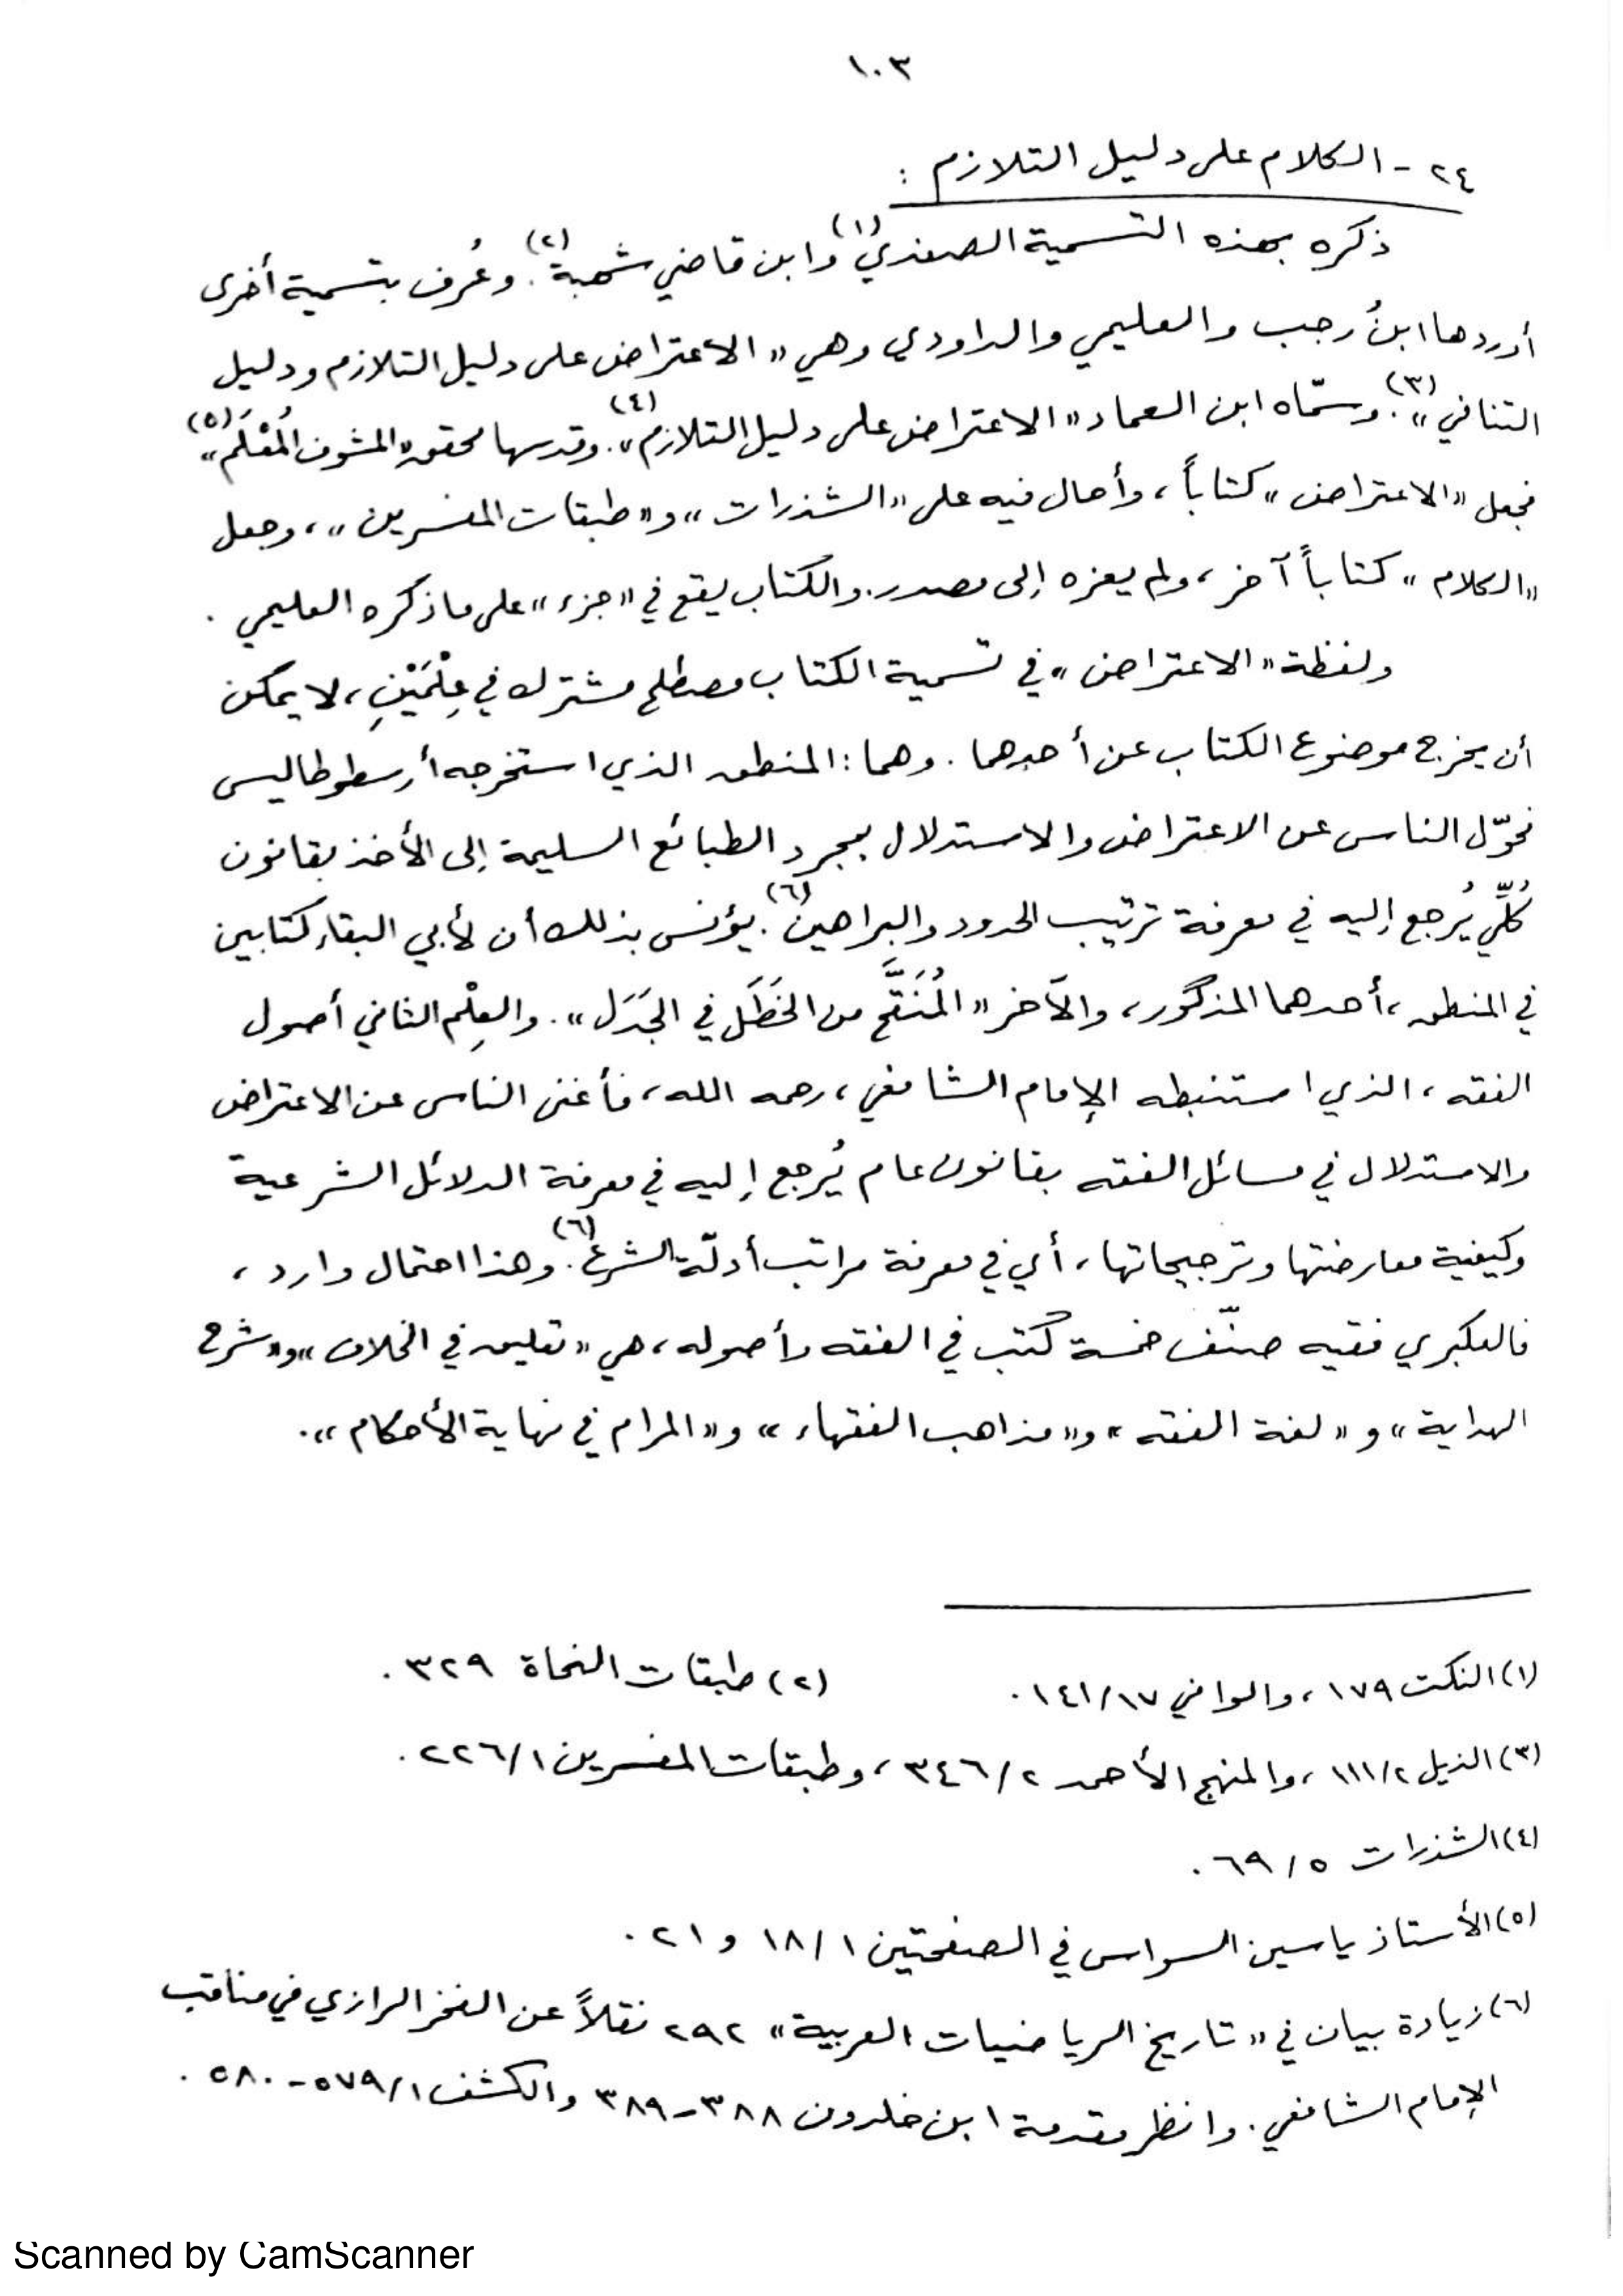 ١٠٣
٢٤ - الكلام على دليل التلازم :
ذكره بهذه التسمية الصفدي(١) وابن قاضي شهبة(٢). وعُرف بتسمية أخرى
أوردها ابنُ رجب والعليمي والداودي وهي «الاعتراض على دليل التلازم ودليل
التنافي»(٣). وسمّاه ابن العماد «الاعتراض على دليل التلازم»(٤). وقد سها محقق «المشوف المُعْلَم»(٥)
فجعل «الاعتراض» كتاباً، وأحال فيه على «الشذرات» و«طبقات المفسرين»، وجعل
«الكلام» كتاباً آخر، ولم يعزه إلى مصدر. والكتاب يقع في «جزء» على ما ذكره العليمي .
ولفظة «الاعتراض» في تسمية الكتاب مصطلح مشترك في عِلْمَيْنِ، لا يمكن
أن يخرج موضوع الكتاب عن أحدهما. وهما: المنطق الذي استخرجه أرسطوطاليس
فحوّل الناس عن الاعتراض والاستدلال بمجرد الطبائع السليمة إلى الأخذ بقانون
كُلِّيّ يُرجع إليه في معرفة ترتيب الحدود والبراهين(٦). يؤنس بذلك أن لأبي البقاء كتابين
في المنطق، أحدهما المذكور، والآخر «المُنَقَّح من الخَطَل في الجَدَل». والعِلْم الثاني أصول
الفقه، الذي استنبطه الإمام الشافعي، رحمه الله، فأغنى الناس عن الاعتراض
والاستدلال في مسائل الفقه بقانون عام يُرجع إليه في معرفة الدلائل الشرعية
وكيفية معارضتها وترجيحاتها، أي في معرفة مراتب أدلّة الشرع(٦). وهذا احتمال وارد،
فالعكبري فقيه صنّف خمسة كتب في الفقه وأصوله، هي «تعليق في الخلاف» و«شرح
الهداية» و«لغة الفقه» و«مذاهب الفقهاء» و«المرام في نهاية الأحكام».
(١) النكت ١٧٩، والوافي ١٤١/١٧. (٢) طبقات النحاة ٣٢٩.
(٣) الذيل ١١١/٢، والمنهج الأحمد ٣٤٦/٢، وطبقات المفسرين ٢٢٦/١.
(٤) الشذرات ٦٩/٥.
(٥) الأستاذ ياسين السواس في الصفحتين ١٨/١ و ٢١.
(٦) زيادة بيان في «تاريخ الرياضيات العربية» ٢٩٢ نقلاً عن الفخر الرازي في مناقب
الإمام الشافعي. وانظر مقدمة ابن خلدون ٣٨٨-٣٨٩ والكشف ٥٧٩/١-٥٨٠.
Scanned by CamScanner